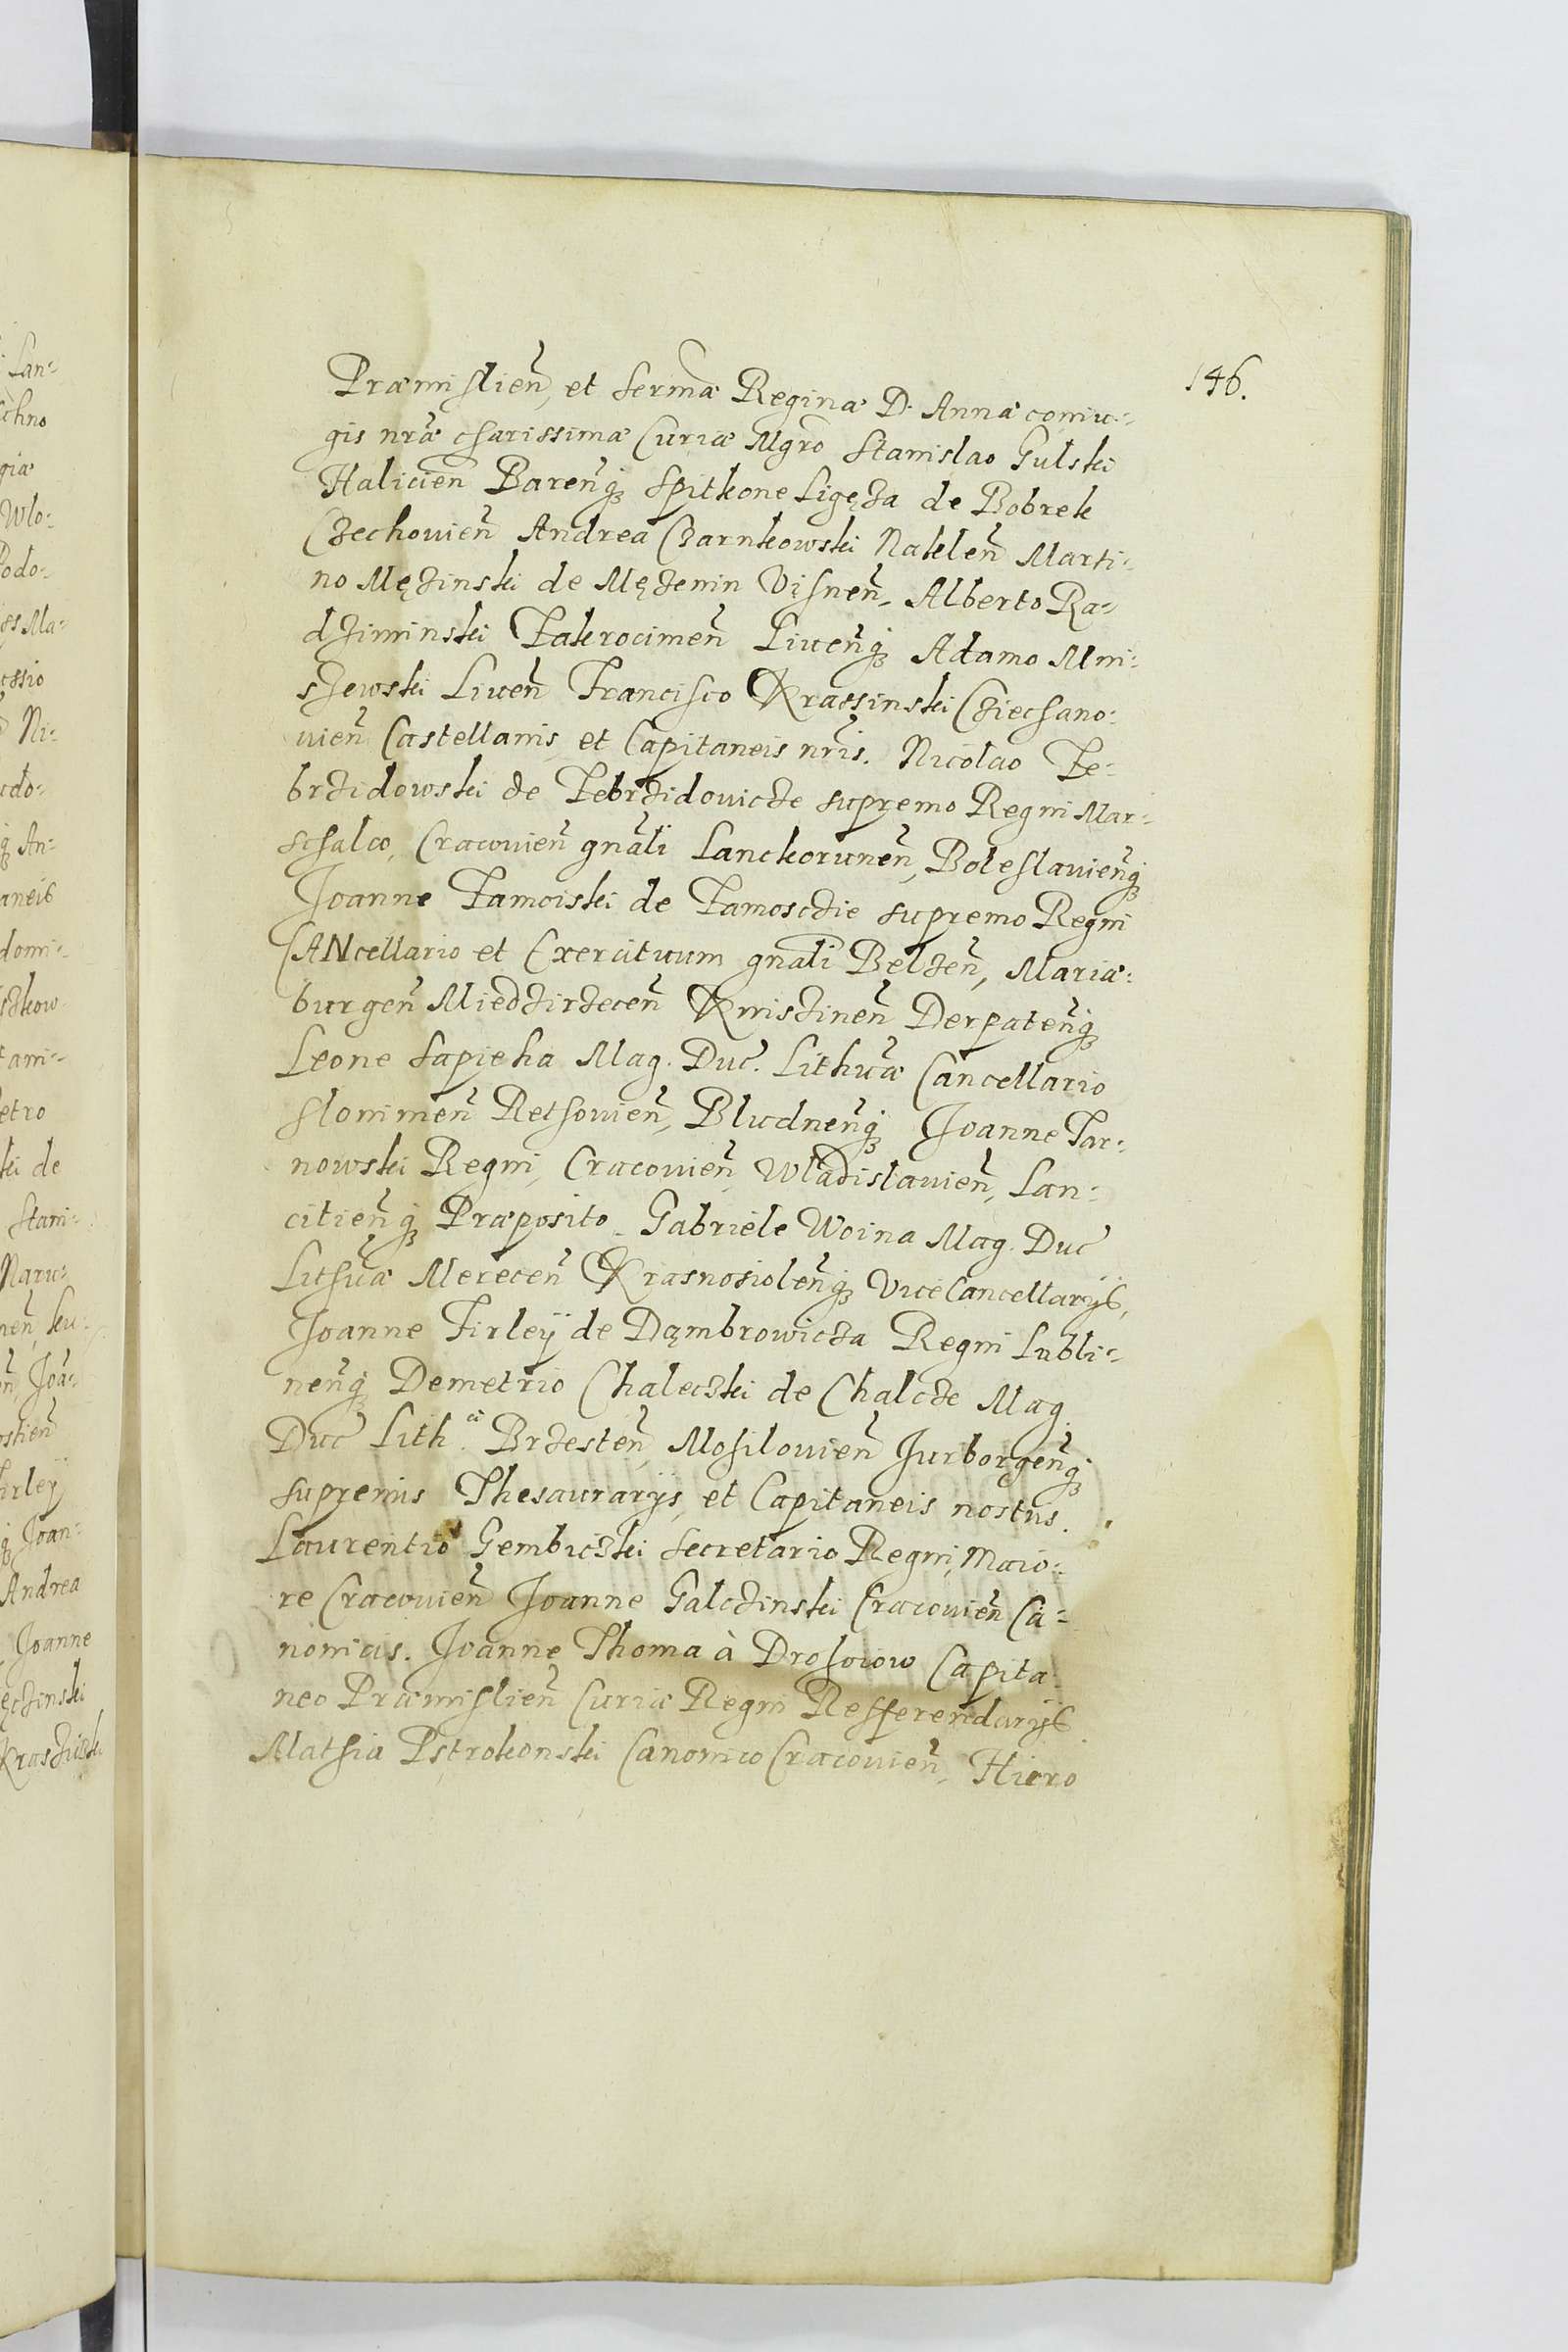 146.
Præmislien̄, et Serm̄æ Reginæ D. Annæ coniu=
gis nr̄æ charissimæ Curiæ Mgrō Stanislao Gulski
Halicien̄ Baren̄q₃ Spitkone Ligęza de Bobrek
Czechouien̄ Andrea Czarnkowski Naklen̄ Marti=
no Męzinski de Męzenin Visnen̄, Alberto Ra=
dziminski Zakrocimen̄ Liuen̄q₃ Adamo Mni=
szewski Liuen̄ Francisco Krassinski Cziechano=
uien̄ Castellanis, et Capitaneis nr̄is. Nicolao Ze=
brzidowski de Zebrzidouicze supremo Regni Mar=
schalco, Cracouien̄ gnāli Lanckorunen̄, Boleslauien̄q₃
Joanne Zamoiski de Zamosczie supremo Regni
CANcellario et Exercituum gnāli Belzen̄, Mariæ=
burgen̄ Miedzirzecen̄ Kniszinen̄ Derpaten̄q₃
Leone Sapieha Mag. Duc. Lithuæ Cancellario
Slonimen̄ Retsouien̄, Bludnen̄q₃ Joanne Tar=
nowski Regni, Cracouien̄ Wladislauien̄, Lan=
citien̄q₃ Præposito. Gabriele Woina Mag. Duc
Lithuæ Merecen̄ Krasnosiolen̄q₃ ViceCancellarijs,
Joanne Firleÿ de Dąmbrowicza Regni Lubli=
nen̄q₃ Demetrio Chaleczki de Chalcze Mag.
Duc Lith.æ Brzesten̄, Mohilouien̄ Jurborgen̄q₃
supremis Thesaurarijs, et Capitaneis nostris.
Laurentio Gembiczki Secretario Regni, Maio=
re Cracouien̄ Joanne Galczinski Cracouien̄ Ca=
nonicis. Joanne Thoma à Drohoiow Capita=
neo Præmislien̄ Curiæ Regni Refferendarijs
Mathia Pstrokonski Canonico Cracouien̄, Hiero